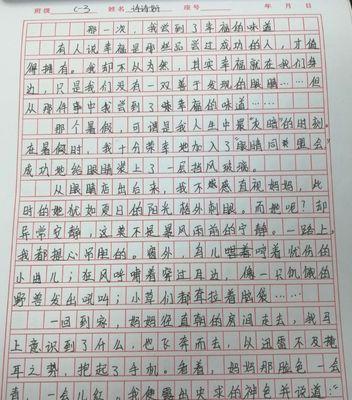 班级 姓名 座号 年 月 日
那一次，我尝到了幸福的味道
有人说幸福是那些品尝过成功的人，才值
得拥有。我却不以为然，其实幸福就在我们身
边，只是我们没有一双善于发现的眼睛……但
从那件事中我尝到了幸福的味道……
那个暑假，可谓是我人生中最"灰暗"的时刻，
在暑假时，我十分荣幸地加入了"眼睛同盟会"
成功地给眼睛装上了一层挡风玻璃。
从眼睛店出台来，我不感直视妈妈，此
时的她犹如夏日的阳光格外刺眼。而她呢？却
异常安静，这莫不是暴风雨前的宁静。一路上，
我都提心吊胆的。窗外，鸟儿唱着忧伤的
小曲儿；狂风呼啸着穿过耳边，像一只饥饿的
野兽发出吼叫；小草们都耷拉着脑袋……
一回到家，妈妈径直朝的房间走去，我马
上意识到了什么，也飞奔而去，从迅雷不及掩
耳之势，抱起了手机。看着，妈妈那脸色一会
青，一会儿红，我便露出央求的神色并说道：